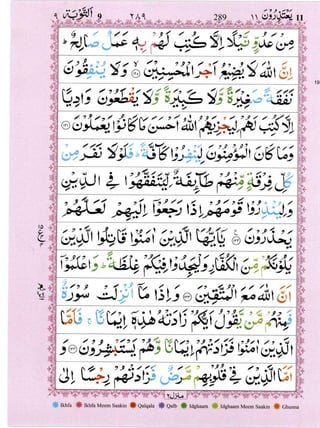 ٩ اَلتَّوْبَة 9 ٢٨٩ 289 ١١ يَعْتَذِرُوْنَ 11
مِنْ عَدُوٍّ نَّيْلًا اِلَّا كُتِبَ لَهُمْ بِهٖ عَمَلٌ صَالِحٌ ؕ
اِنَّ اللّٰهَ لَا يُضِيْعُ اَجْرَ الْمُحْسِنِيْنَ ﴿۱۲۰﴾ وَلَا يُنْفِقُوْنَ
نَفَقَةً صَغِيْرَةً وَّلَا كَبِيْرَةً وَّلَا يَقْطَعُوْنَ وَادِيًا
اِلَّا كُتِبَ لَهُمْ لِيَجْزِيَهُمُ اللّٰهُ اَحْسَنَ مَا كَانُوْا يَعْمَلُوْنَ ﴿۱۲۱﴾
وَمَا كَانَ الْمُؤْمِنُوْنَ لِيَنْفِرُوْا كَآفَّةً ؕ فَلَوْلَا نَفَرَ مِنْ
كُلِّ فِرْقَةٍ مِّنْهُمْ طَآئِفَةٌ لِّيَتَفَقَّهُوْا فِى الدِّيْنِ
وَلِيُنْذِرُوْا قَوْمَهُمْ اِذَا رَجَعُوْۤا اِلَيْهِمْ لَعَلَّهُمْ
يَحْذَرُوْنَ ﴿۱۲۲﴾ يٰۤاَيُّهَا الَّذِيْنَ اٰمَنُوْا قَاتِلُوا الَّذِيْنَ
يَلُوْنَكُمْ مِّنَ الْكُفَّارِ وَلْيَجِدُوْا فِيْكُمْ غِلْظَةً ؕ وَاعْلَمُوْۤا
اَنَّ اللّٰهَ مَعَ الْمُتَّقِيْنَ ﴿۱۲۳﴾ وَاِذَا مَاۤ اُنْزِلَتْ سُوْرَةٌ
فَمِنْهُمْ مَّنْ يَّقُوْلُ اَيُّكُمْ زَادَتْهُ هٰذِهٖۤ اِيْمَانًا ۚ فَاَمَّا
الَّذِيْنَ اٰمَنُوْا فَزَادَتْهُمْ اِيْمَانًا وَّهُمْ يَسْتَبْشِرُوْنَ ﴿۱۲۴﴾ وَ
اَمَّا الَّذِيْنَ فِىْ قُلُوْبِهِمْ مَّرَضٌ فَزَادَتْهُمْ رِجْسًا اِلٰى
منزل ٢
Ikhfa Ikhfa Meem Saakin Qalqala Qalb Idghaam Idghaam Meem Saakin Ghunna
19